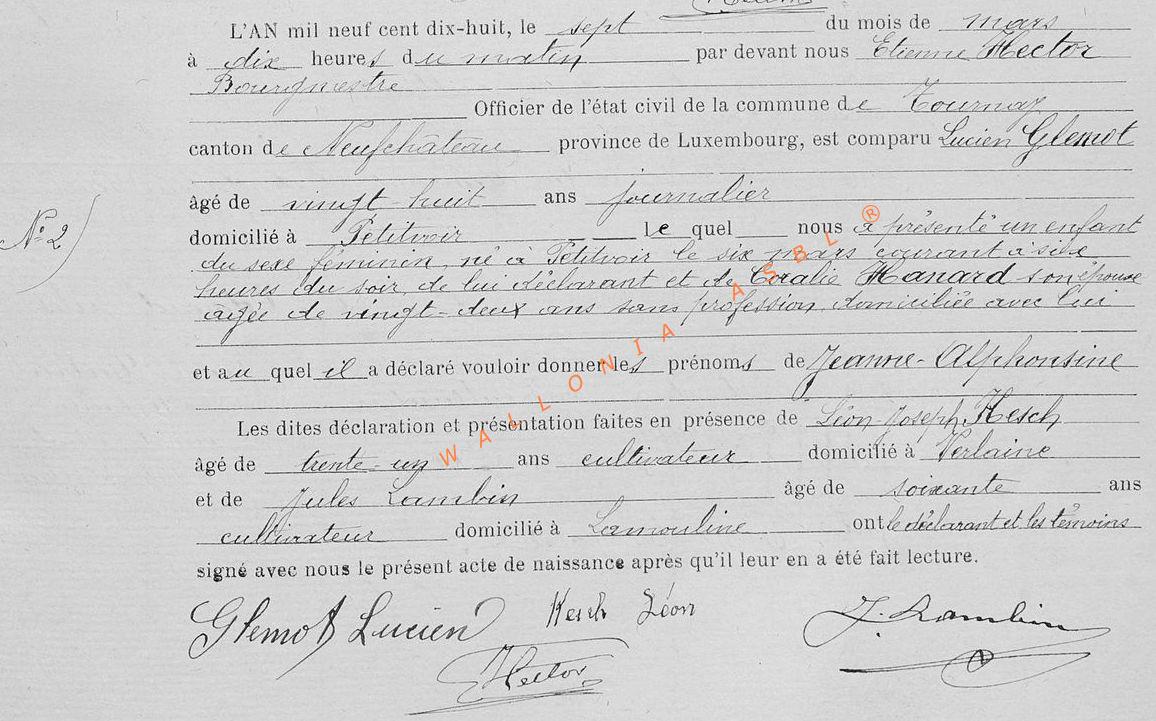 Hector
L'AN mil neuf cent dix-huit, le sept du mois de mars
à dix heures du matin par devant nous Etienne Hector
Bourgmestre
Officier de l'état civil de la commune de Tournay
canton de Neufchâteau province de Luxembourg, est comparu Lucien Glemot
âgé de vingt-huit ans journalier
domicilié à Petitvoir le quel nous a présenté un enfant
N° 2
du sexe féminin, né à Petitvoir le six mars courant à six
heures du soir, de lui déclarant et de Coralie Hanard son épouse
agée de vingt-deux ans sans profession, domiciliée avec lui
et au quel il a déclaré vouloir donner les prénoms de Jeanne-Alphonsine
Les dites déclaration et présentation faites en présence de Léon-Joseph Hesch
âgé de trente-un ans cultivateur domicilié à Verlaine
et de Jules Lambin âgé de soixante ans
cultivateur domicilié à Lamouline ont le déclarant et les témoins
signé avec nous le présent acte de naissance après qu'il leur en a été fait lecture.
Glemot Lucien Hesch Léon J. Lambin
Hector
WALLONIA ASBL ®